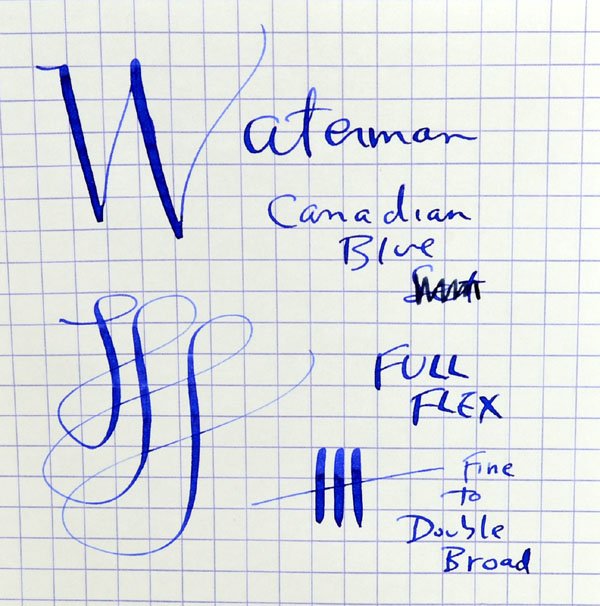 Waterman
Canadian
Blue
FULL
FLEX
Fine
to
Double
Broad